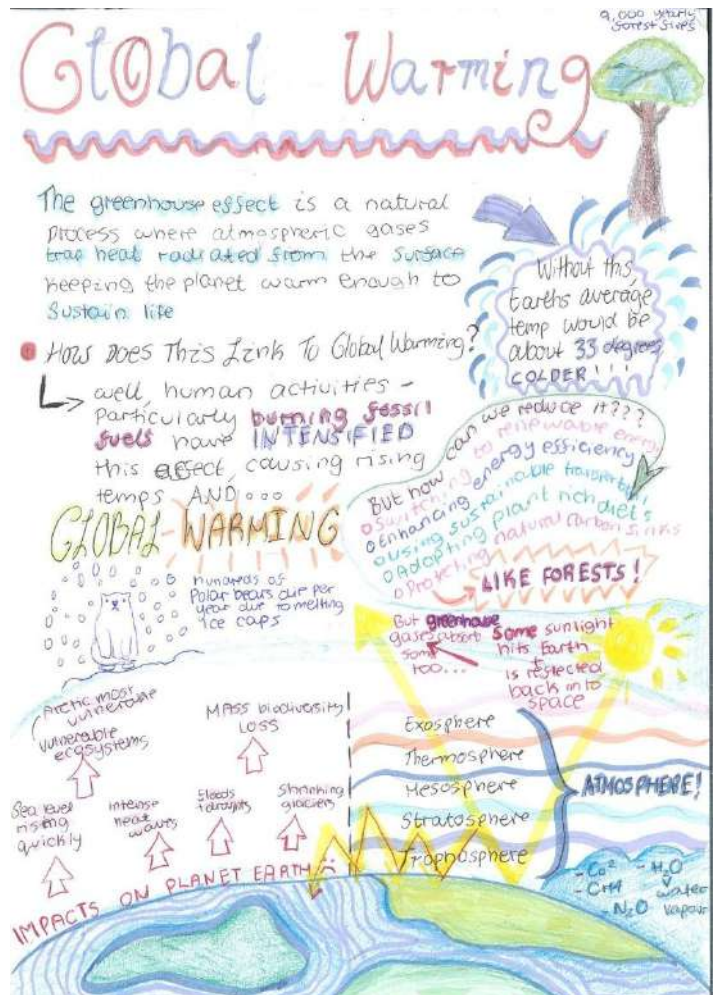 9,000 yearly
forest fires
Global Warming
The greenhouse effect is a natural
process where atmospheric gases
trap heat radiated from the surface
keeping the planet warm enough to
sustain life
Without this,
Earths average
temp would be
about 33 degrees
COLDER!!!
How Does This Link To Global Warming?
well, human activities -
particularly burning fossil
fuels have INTENSIFIED
this effect, causing rising
temps AND...
GLOBAL WARMING
But how can we reduce it???
switching to renewable energy
enhancing energy efficiency
using sustainable transport
Adopting plant rich diets
Protecting natural carbon sinks
LIKE FORESTS!
hundreds of
Polar bears die per
year due to melting
ice caps
But greenhouse
gases absorb
some
too...
some sunlight
hits Earth
+
is reflected
back into
space
Arctic most
vulnerable
vulnerable
ecosystems
MASS biodiversity
LOSS
Sea level
rising
quickly
Intense
heat
waves
floods
droughts
Shrinking
glaciers
IMPACTS ON PLANET EARTH
Exosphere
Thermosphere
Mesosphere
Stratosphere
Trophosphere
ATMOSPHERE!
- Co²
- CH4
- N₂O
- H₂O
water
vapour